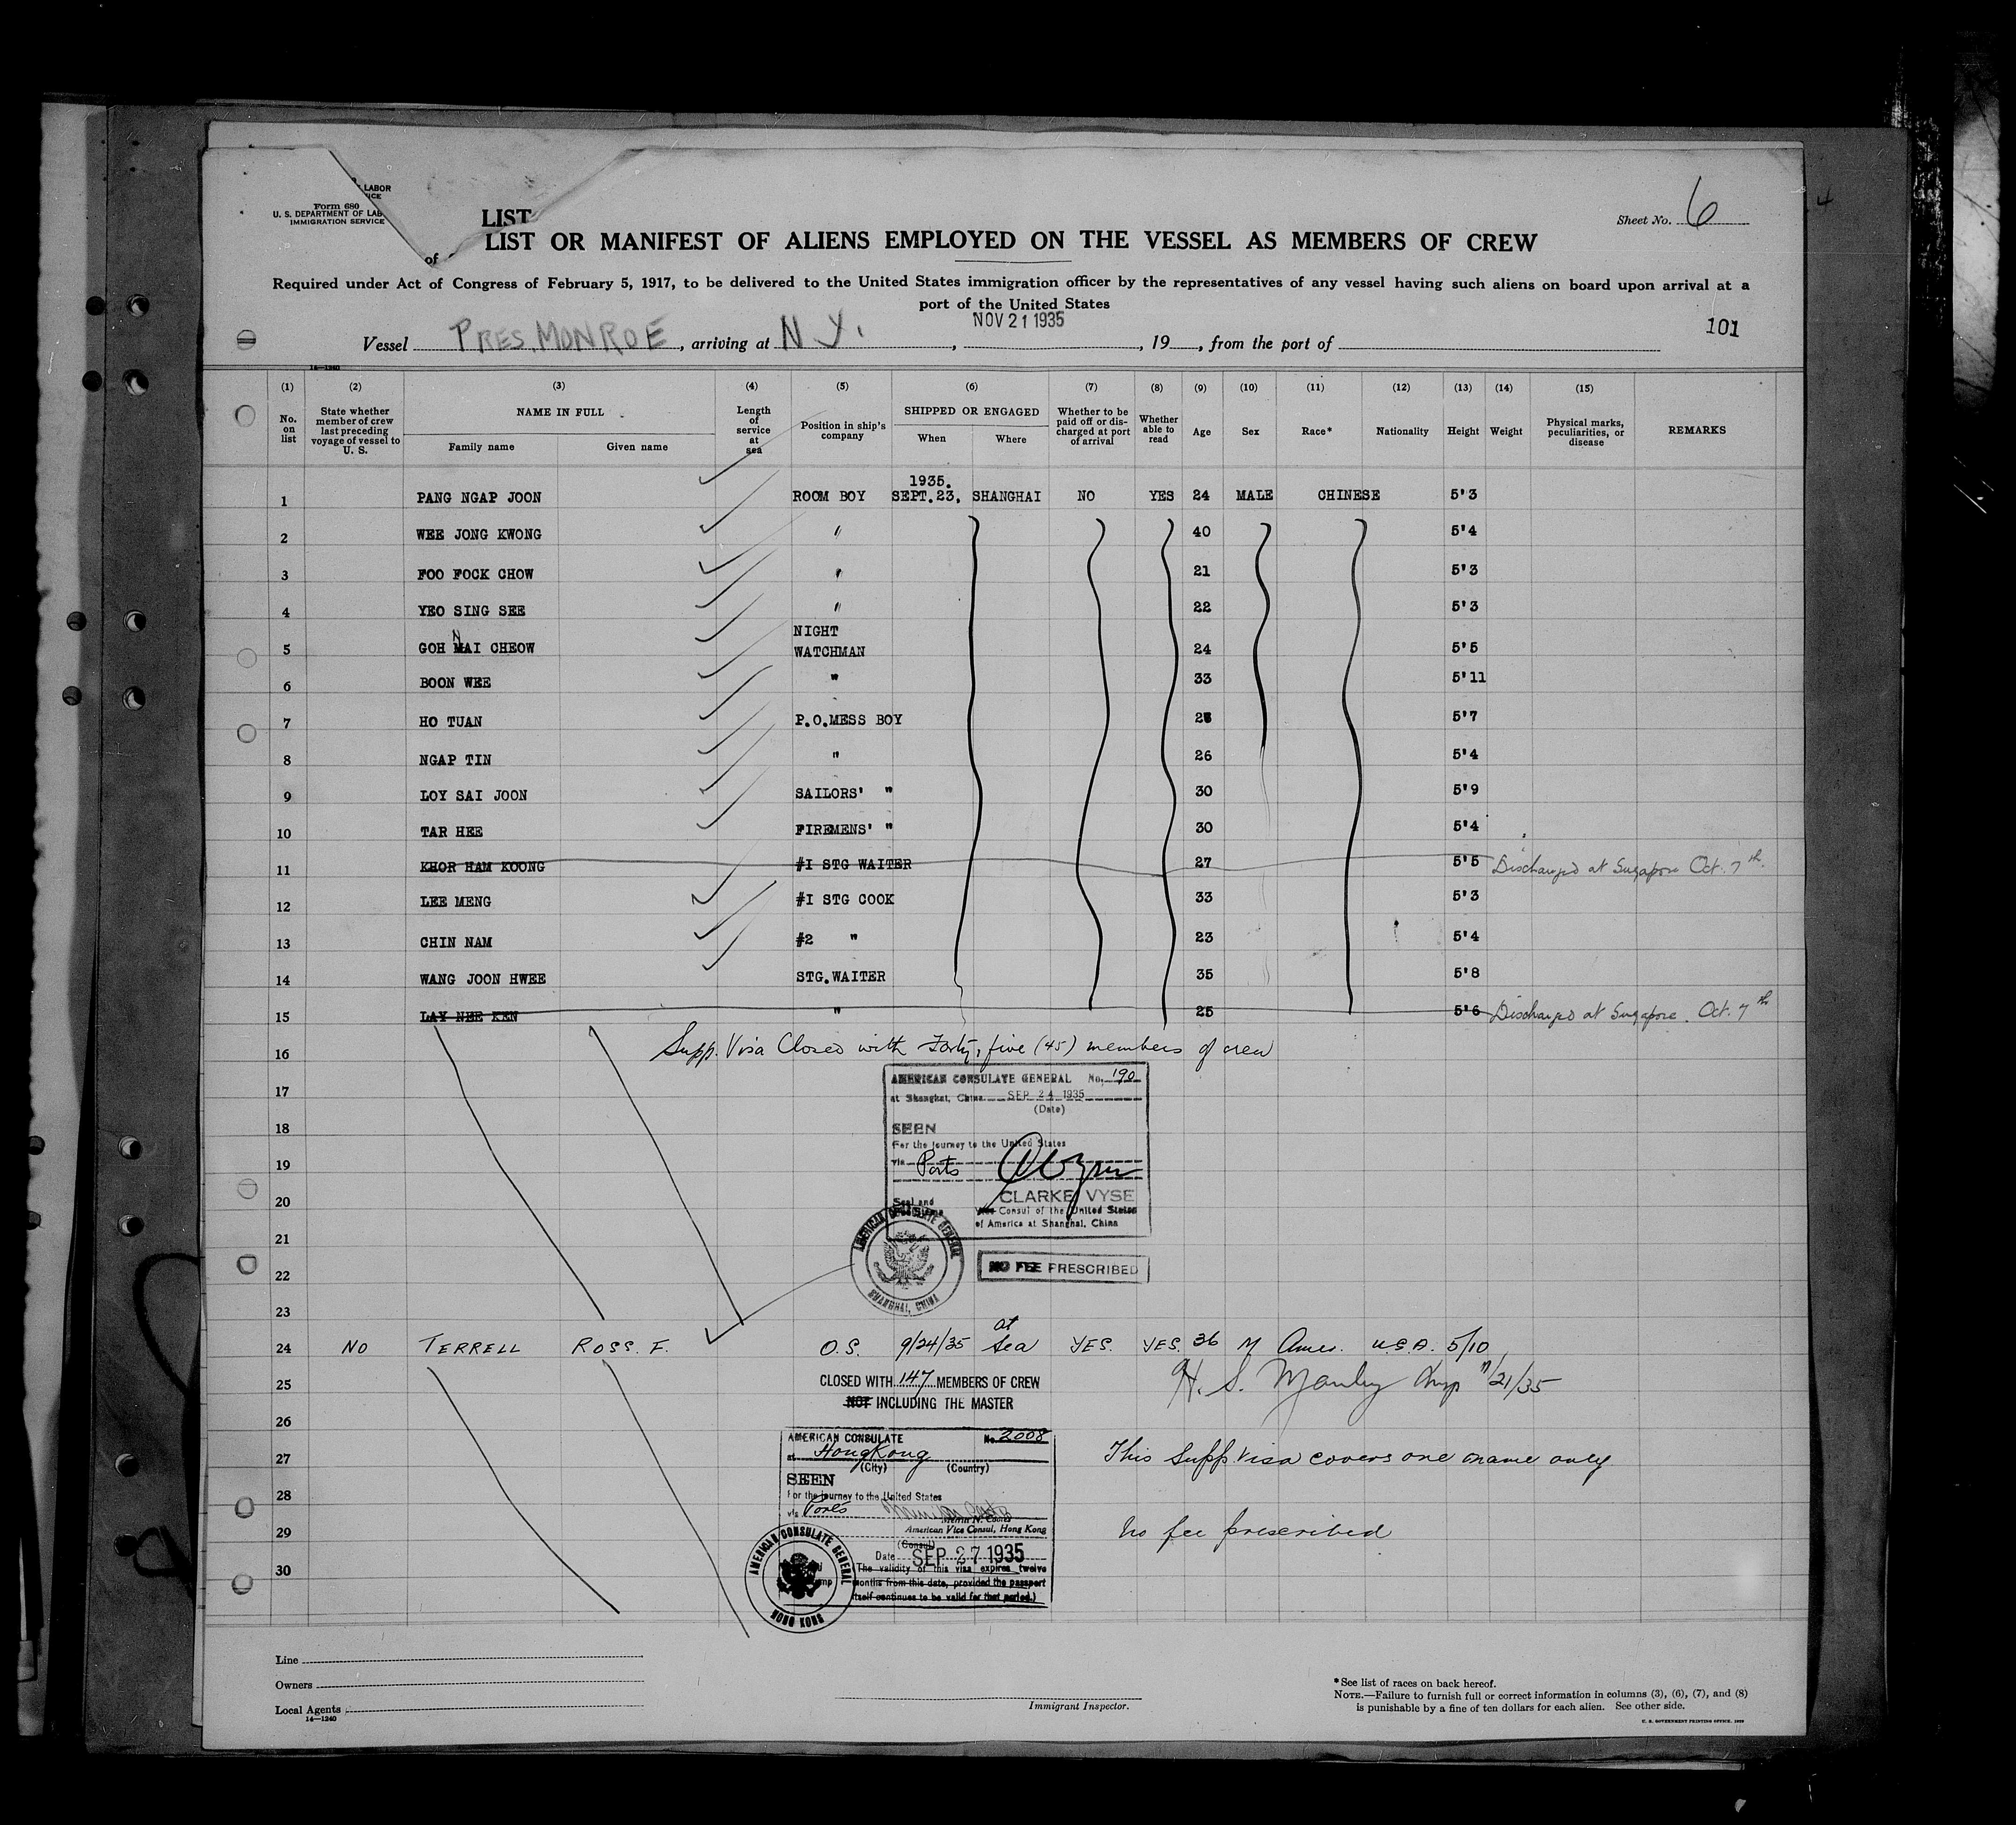 LABOR
Form 680
U. S. DEPARTMENT OF LAB
IMMIGRATION SERVICE
LIST
of
Sheet No. 6
4
LIST OR MANIFEST OF ALIENS EMPLOYED ON THE VESSEL AS MEMBERS OF CREW
Required under Act of Congress of February 5, 1917, to be delivered to the United States immigration officer by the representatives of any vessel having such aliens on board upon arrival at a
port of the United States
NOV 21 1935
101
Vessel PRES. MONROE, arriving at N Y., , 19 , from the port of
14—1240
(1) (2) (3) (4) (5) (6) (7) (8) (9) (10) (11) (12) (13) (14) (15)
No. on list
State whether member of crew last preceding voyage of vessel to U. S.
NAME IN FULL
Family name Given name
Length of service at sea
Position in ship's company
SHIPPED OR ENGAGED
When Where
Whether to be paid off or discharged at port of arrival
Whether able to read
Age
Sex
Race*
Nationality
Height
Weight
Physical marks, peculiarities, or disease
REMARKS
1935.
1 PANG NGAP JOON ROOM BOY SEPT.23, SHANGHAI NO YES 24 MALE CHINESE 5'3
2 WEE JONG KWONG " 40 5'4
3 FOO FOCK CHOW " 21 5'3
4 YEO SING SEE " 22 5'3
NIGHT
5 GOH NAI CHEOW WATCHMAN 24 5'5
6 BOON WEE " 33 5'11
7 HO TUAN P.O.MESS BOY 5'7
8 NGAP TIN " 26 5'4
9 LOY SAI JOON SAILORS' " 30 5'9
10 TAR HEE FIREMENS' " 30 5'4
11 KHOR HAM KOONG #1 STG WAITER 27 5'5 Discharged at Singapore Oct. 7th.
12 LEE MENG #1 STG COOK 33 5'3
13 CHIN NAM #2 " 23 5'4
14 WANG JOON HWEE STG.WAITER 35 5'8
15 LAY NEE KEN " 25 5'6 Discharged at Singapore. Oct. 7th
16 Supp. Visa Closed with Forty, five (45) members of crew
17
18
19
20
21
22
23
AMERICAN CONSULATE GENERAL No. 190
at Shanghai, China SEP 24 1935
(Date)
SEEN
For the journey to the United States
via Ports
CLARKE VYSE
Seal and
Vice Consul of the United States
of America at Shanghai, China
AMERICAN CONSULATE GENERAL
SHANGHAI, CHINA
NO FEE PRESCRIBED
24 NO TERRELL ROSS. F. O.S. 9/24/35 at Sea YES. YES. 36 M Amer. U.S.A. 5/10
25 CLOSED WITH 147 MEMBERS OF CREW
NOT INCLUDING THE MASTER
H. S. Manley Insp 11/21/35
26
27
28
29
30
AMERICAN CONSULATE No. 2008
at HongKong
(City) (Country)
SEEN
For the journey to the United States
via Ports
American Vice Consul, Hong Kong
(Consul)
Date SEP 27 1935
(The validity of this visa expires twelve
months from this date, provided the passport
itself continues to be valid for that period.)
AMERICAN CONSULATE GENERAL
HONG KONG
This Supp Visa covers one name only
No fee prescribed
Line
Owners
Local Agents
14—1240
Immigrant Inspector.
*See list of races on back hereof.
NOTE.—Failure to furnish full or correct information in columns (3), (6), (7), and (8)
is punishable by a fine of ten dollars for each alien. See other side.
U. S. GOVERNMENT PRINTING OFFICE. 1929